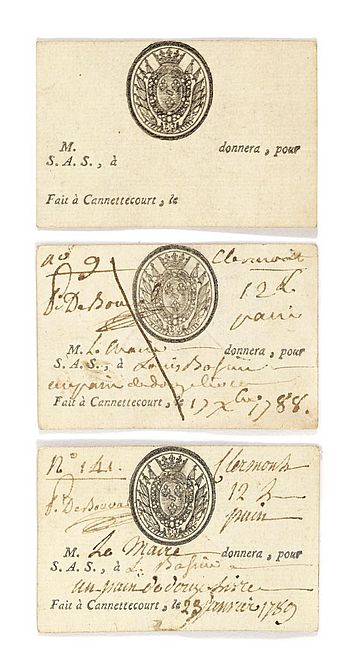 M. donnera, pour
S. A. S., à
Fait à Cannettecourt, le
nº 9 Clermont
12 ll
pain
M. Le Maire donnera, pour
S. A. S., à Louis Bassin
un pain de douze livre
Fait à Cannettecourt, le 17 Xbre 1788.
Nº 141. Clermont
12 ll
pain
M. Le Maire donnera, pour
S. A. S., à L. Bassin
un pain de douze livre
Fait à Cannettecourt, le 23 janvier 1789